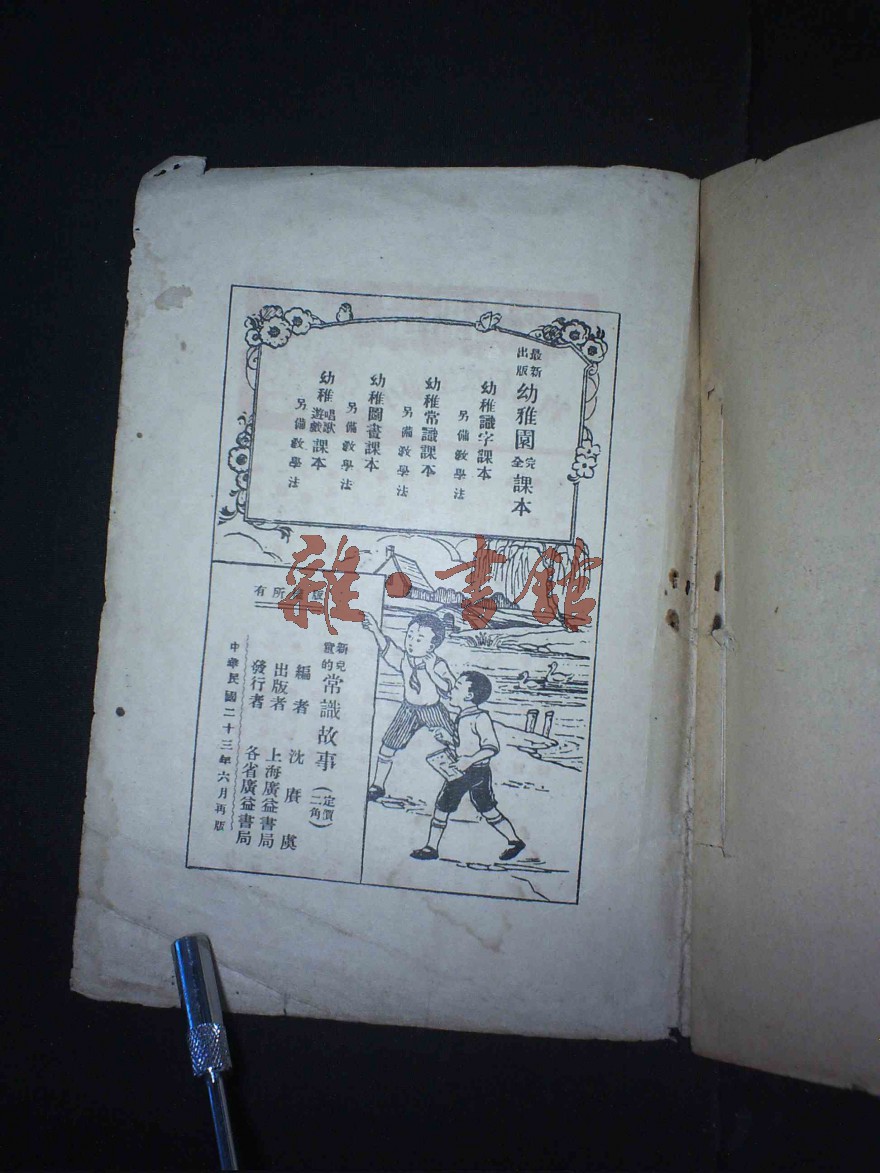 最新出版 幼稚園完全課本
幼稚識字課本
另備教學法
幼稚常識課本
另備教學法
幼稚圖畫課本
另備教學法
幼稚唱歌遊戲課本
另備教學法
雜·書館
版權所有
新兒童的常識故事 (定價二角)
編者 沈賡虞
出版者 上海廣益書局
發行者 各省廣益書局
中華民國二十三年六月再版